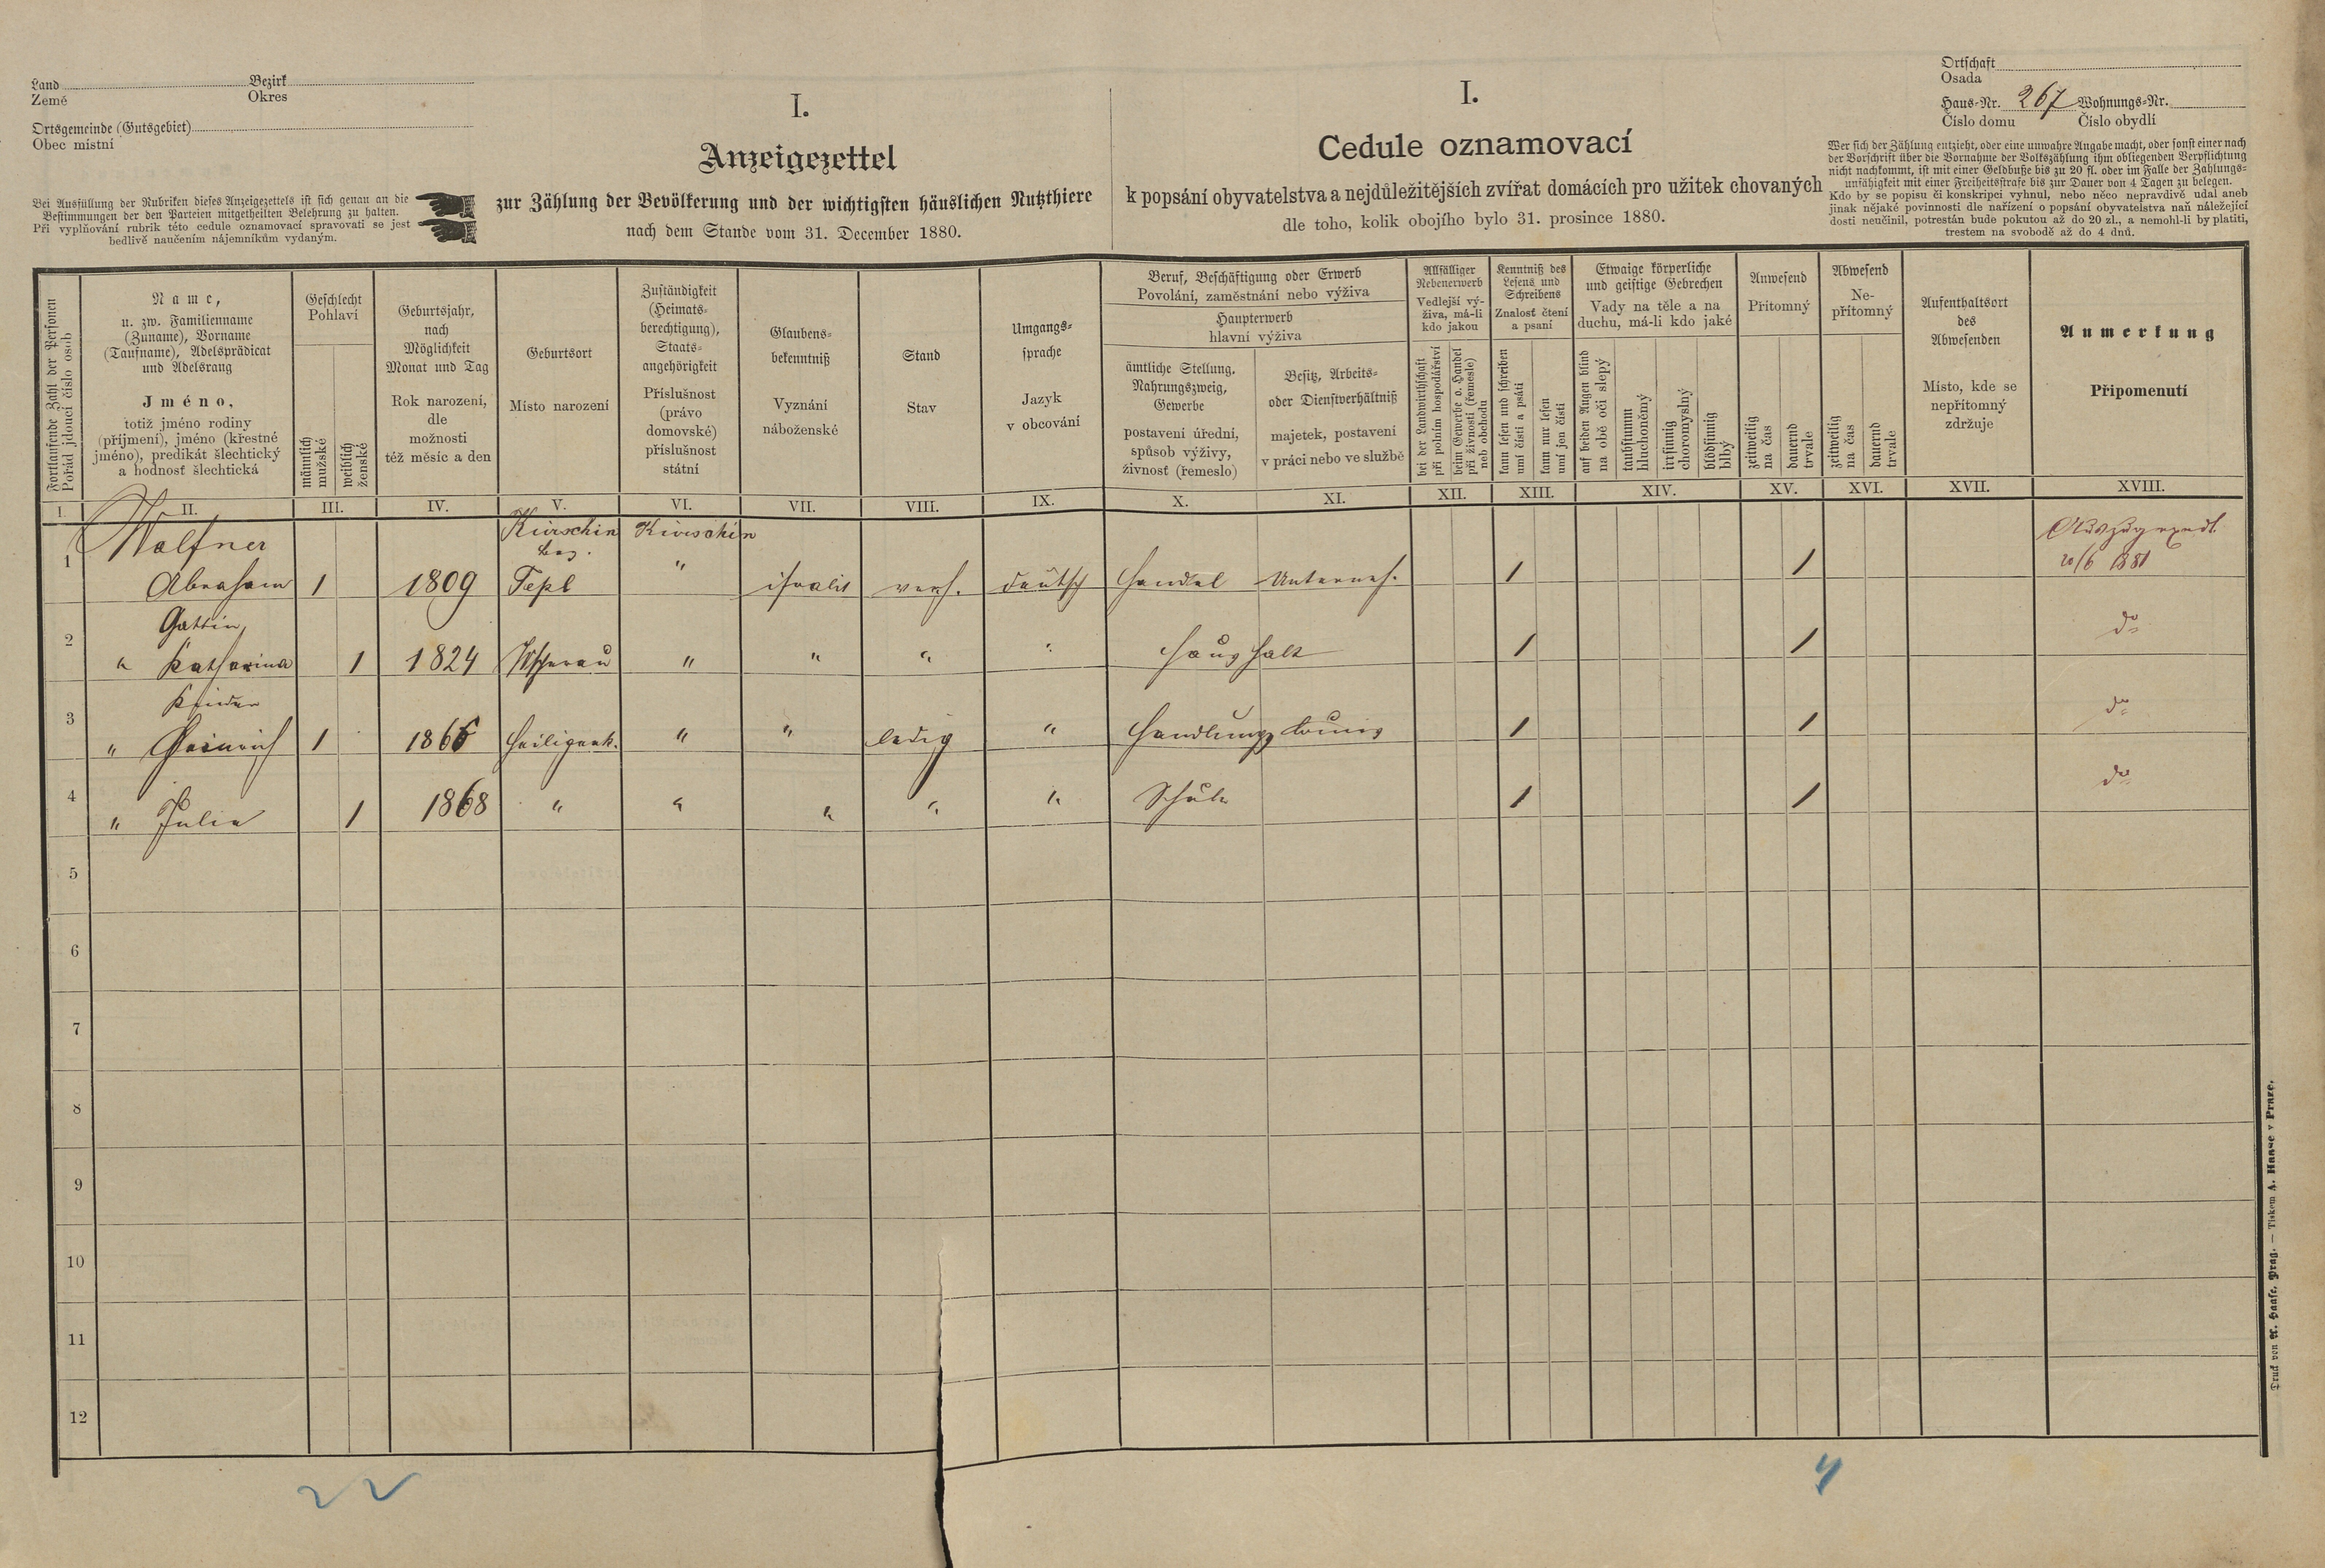 Land Bezirk
Země Okres
Ortsgemeinde (Gutsgebiet)
Obec místní
Bei Ausfüllung der Rubriken dieses Anzeigezettels ist sich genau an die
Bestimmungen der den Parteien mitgetheilten Belehrung zu halten.
Při vyplňování rubrik této cedule oznamovací spravovati se jest
bedlivě naučením nájemníkům vydaným.
I.
Anzeigezettel
zur Zählung der Bevölkerung und der wichtigsten häuslichen Nutzthiere
nach dem Stande vom 31. December 1880.
I.
Cedule oznamovací
k popsání obyvatelstva a nejdůležitějších zvířat domácích pro užitek chovaných
dle toho, kolik obojího bylo 31. prosince 1880.
Ortschaft
Osada
Haus-Nr. 267 Wohnungs-Nr.
Číslo domu Číslo obydlí
Wer sich der Zählung entzieht, oder eine unwahre Angabe macht, oder sonst einer nach
der Vorschrift über die Vornahme der Volkszählung ihm obliegenden Verpflichtung
nicht nachkommt, ist mit einer Geldbuße bis zu 20 fl. oder im Falle der Zahlungs-
unfähigkeit mit einer Freiheitsstrafe bis zur Dauer von 4 Tagen zu belegen.
Kdo by se popisu či konskripci vyhnul, nebo něco nepravdivě udal aneb
jinak nějaké povinnosti dle nařízení o popsání obyvatelstva naň náležející
dosti neučinil, potrestán bude pokutou až do 20 zl., a nemohl-li by platiti,
trestem na svobodě až do 4 dnů.
Fortlaufende Zahl der Personen
Pořád jdoucí číslo osob
Name,
u. zw. Familienname
(Zuname), Vorname
(Taufname), Adelsprädicat
und Adelsrang
Jméno,
totiž jméno rodiny
(příjmení), jméno (křestné
jméno), predikát šlechtický
a hodnosť šlechtická
Geschlecht
Pohlaví
männlich
mužské
weiblich
ženské
Geburtsjahr,
nach
Möglichkeit
Monat und Tag
Rok narození,
dle
možnosti
též měsíc a den
Geburtsort
Místo narození
Zuständigkeit
(Heimats-
berechtigung),
Staats-
angehörigkeit
Příslušnost
(právo
domovské)
příslušnost
státní
Glaubens-
bekenntniß
Vyznání
náboženské
Stand
Stav
Umgangs-
sprache
Jazyk
v obcování
Beruf, Beschäftigung oder Erwerb
Povolání, zaměstnání nebo výživa
Haupterwerb
hlavní výživa
ämtliche Stellung,
Nahrungszweig,
Gewerbe
postavení úřední,
spůsob výživy,
živnosť (řemeslo)
Besitz, Arbeits-
oder Dienstverhältniß
majetek, postavení
v práci nebo ve službě
Allfälliger
Nebenerwerb
Vedlejší vý-
živa, má-li
kdo jakou
bei der Landwirthschaft
při polním hospodářství
beim Gewerbe o. Handel
při živnosti (řemesle)
neb obchodu
Kenntniß des
Lesens und
Schreibens
Znalosť čtení
a psaní
kann lesen und schreiben
umí čísti a psáti
kann nur lesen
umí jen čísti
Etwaige körperliche
und geistige Gebrechen
Vady na těle a na
duchu, má-li kdo jaké
auf beiden Augen blind
na obě oči slepý
taubstumm
hluchoněmý
irrsinnig
choromyslný
blödsinnig
blbý
Anwesend
Přítomný
zeitweilig
na čas
dauernd
trvale
Abwesend
Ne-
přítomný
zeitweilig
na čas
dauernd
trvale
Aufenthaltsort
des
Abwesenden
Místo, kde se
nepřítomný
zdržuje
Anmerkung
Připomenutí
I. II. III. IV. V. VI. VII. VIII. IX. X. XI. XII. XIII. XIV. XV. XVI. XVII. XVIII.
Walfner Kirvschin Kirvschin
bez.
1 Abraham 1 1809 Tepl " israelit verh. deutsch Handel Unterneh. 1 1 20/6 1881
Gattin
2 " Katharina 1 1824 " " " " Haushalt 1 1 do
Kinder
3 " Heinrich 1 1866 Heiligenk. " " ledig " Handlungs 1 1 do
4 " Julia 1 1868 " " " " " Schule 1 1 do
5
6
7
8
9
10
11
12
22
4
Druck von A. Haase, Prag. — Tiskem A. Haase v Praze.